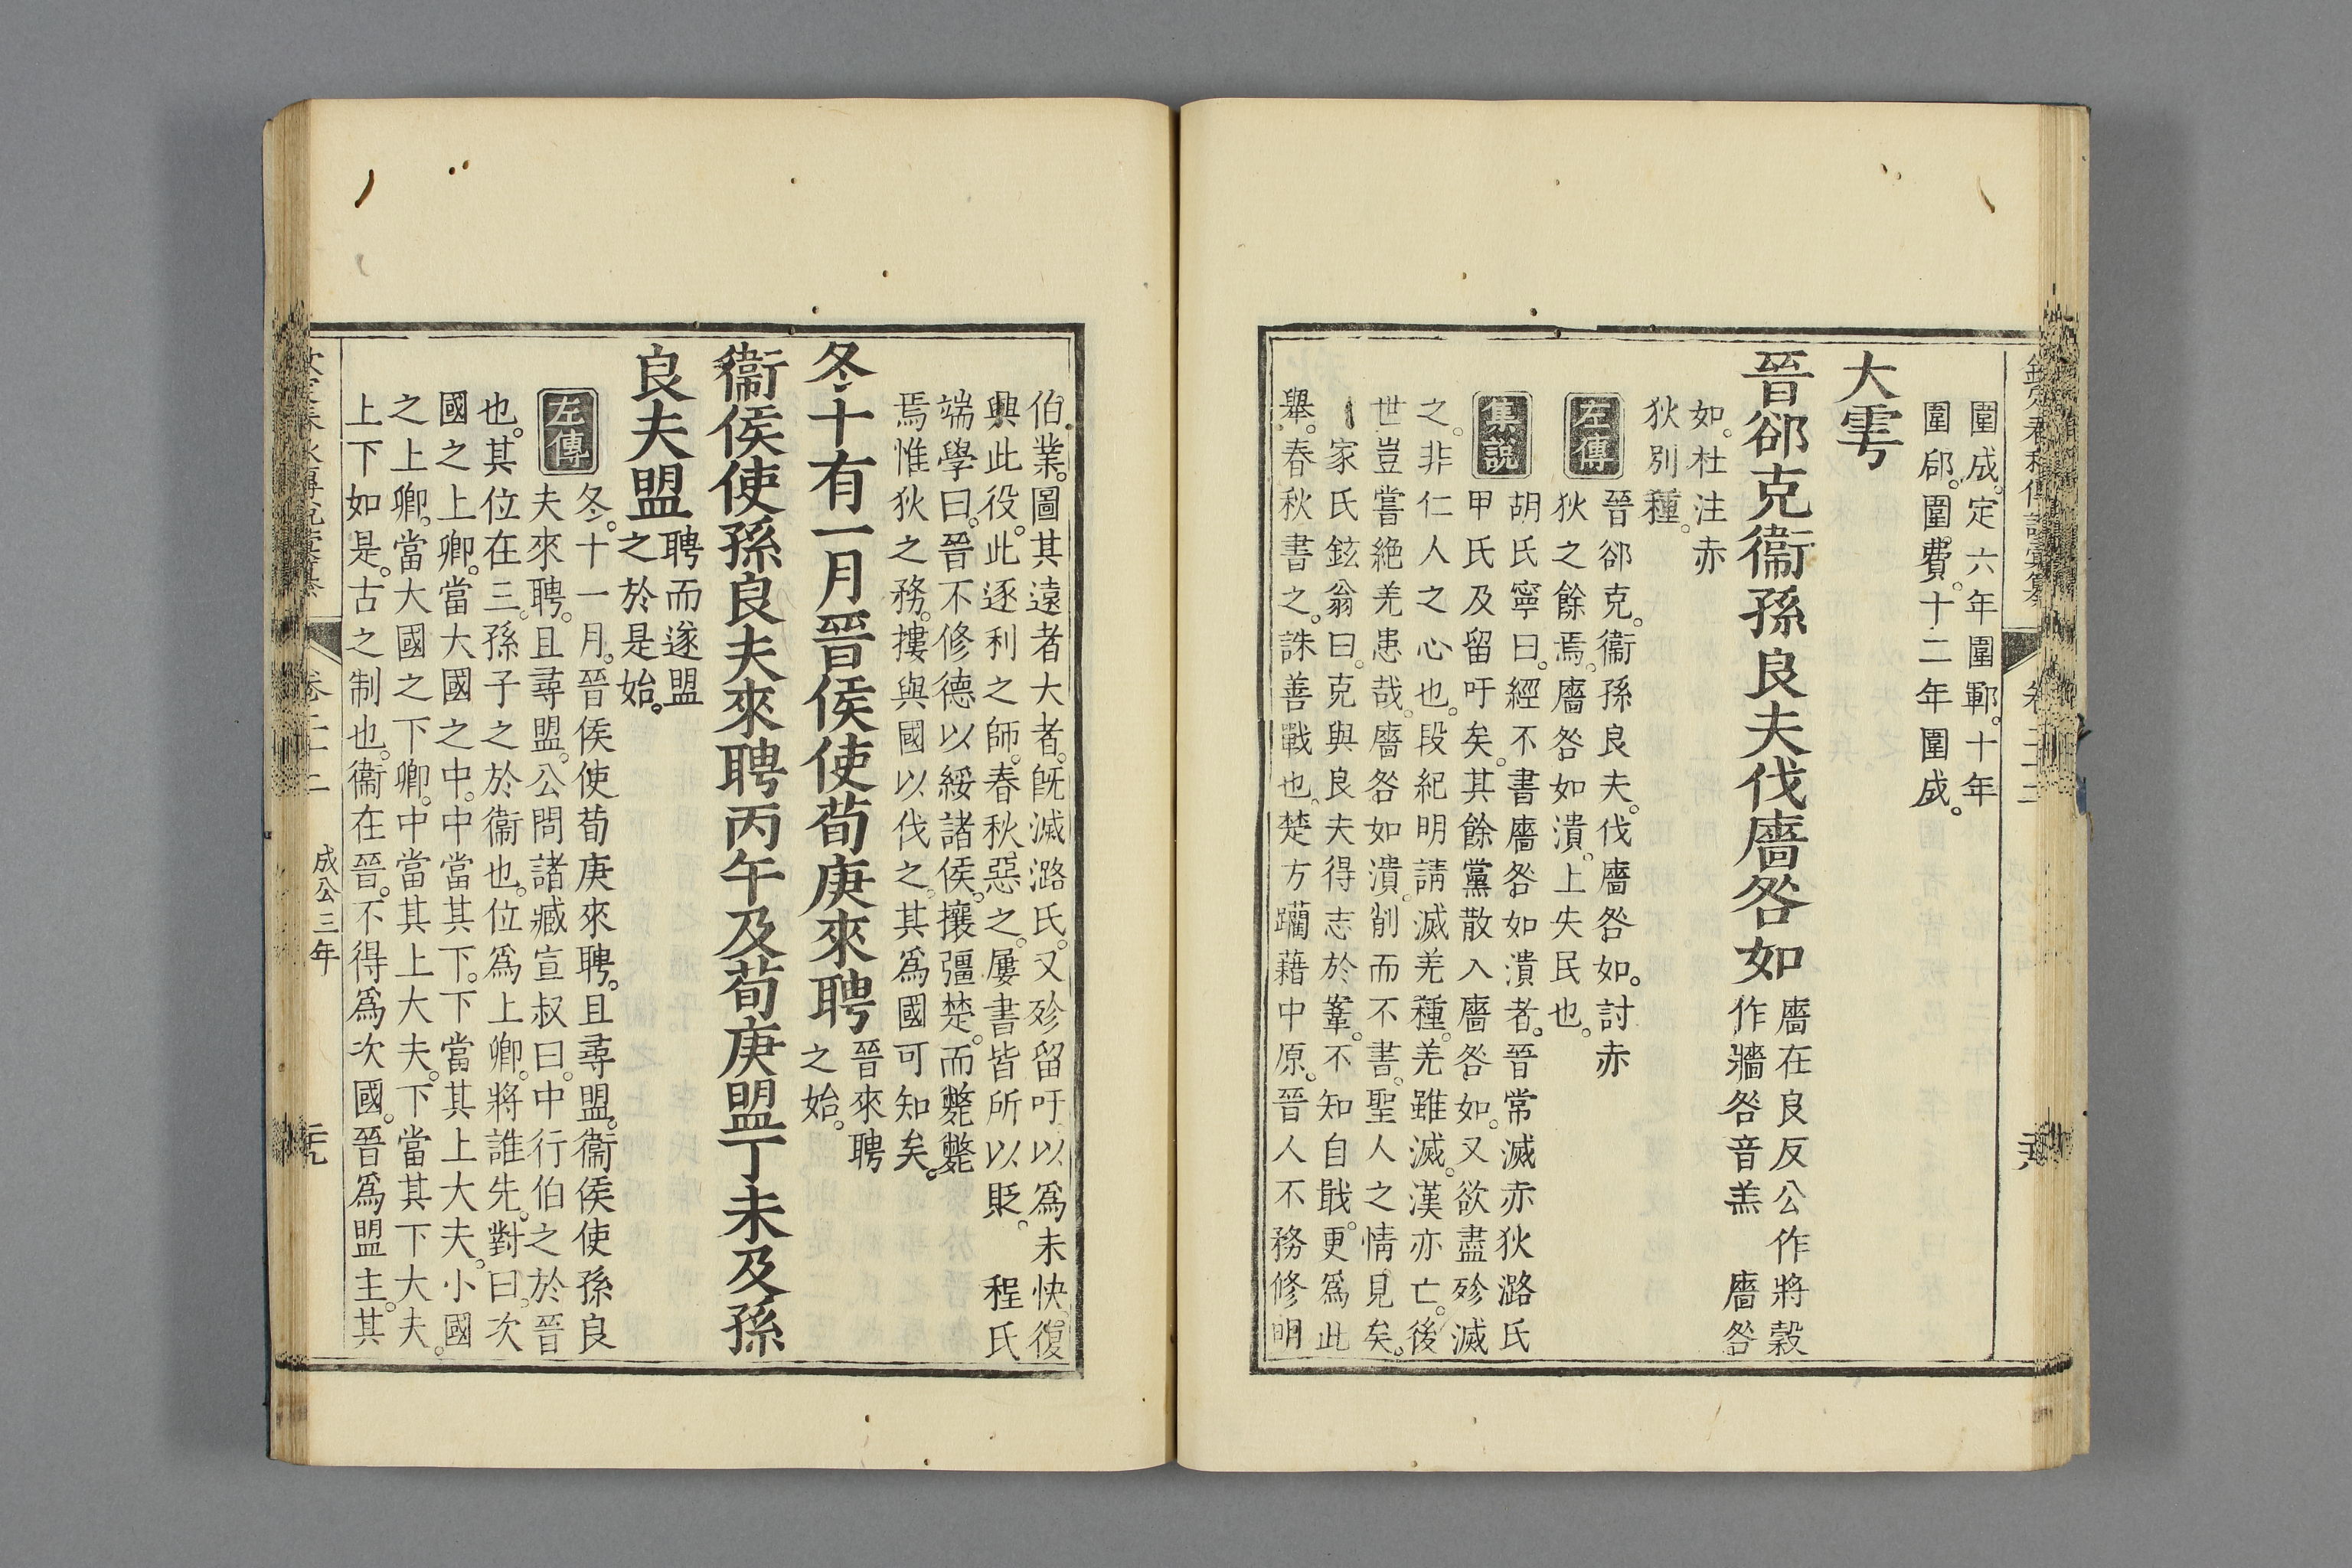 圍成。定六年圍鄆。十年
圍郈。圍費。十二年圍成。
大雩
晉郤克衞孫良夫伐廧咎如
廧在良反公作將穀
作牆咎音羔 廧咎
如。杜注赤
狄別種。
左傳
晉郤克。衞孫良夫。伐廧咎如。討赤
狄之餘焉。廧咎如潰。上失民也。
集說
胡氏寧曰。經不書廧咎如潰者。晉常滅赤狄潞氏
甲氏及留吁矣。其餘黨散入廧咎如。又欲盡殄滅
之。非仁人之心也。段紀明請滅羌種。羌雖滅。漢亦亡。後
世豈嘗絕羌患哉。廧咎如潰。削而不書。聖人之情見矣。
家氏鉉翁曰。克與良夫得志於鞌。不知自戢。更爲此
舉。春秋書之。誅善戰也。楚方躪藉中原。晉人不務修明
伯業。圖其遠者大者。旣滅潞氏。又殄留吁以爲未快。復
興此役。此逐利之師。春秋惡之。屢書皆所以貶。 程氏
端學曰。晉不修德以綏諸侯。攘彊楚。而斃斃
焉惟狄之務。摟與國以伐之。其爲國可知矣。
冬十有一月晉侯使荀庚來聘
晉來聘
之始。
衞侯使孫良夫來聘丙午及荀庚盟丁未及孫
良夫盟
聘而遂盟
之於是始。
左傳
冬。十一月。晉侯使荀庚來聘。且尋盟。衞侯使孫良
夫來聘。且尋盟。公問諸臧宣叔曰。中行伯之於晉
也。其位在三。孫子之於衞也。位爲上卿。將誰先。對曰。次
國之上卿。當大國之中。中當其下。下當其上大夫。小國
之上卿。當大國之下卿。中當其上大夫。下當其下大夫。
上下如是。古之制也。衞在晉。不得爲次國。晉爲盟主。其
成公三年